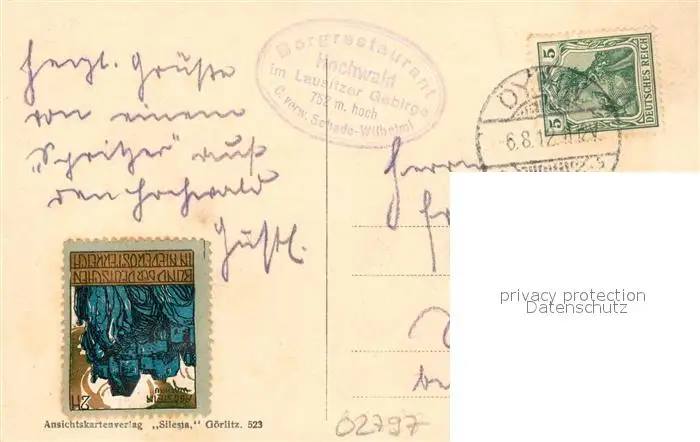 Herzl. Grüße
von einem
„Spritzer" auf
den Hochwald
Gustl.
Bergrestaurant
Hochwald
im Lausitzer Gebirge
752 m. hoch
C. verw. Schade-Wilhelmi
5
5
DEUTSCHES REICH
OY
6.8.12.
Herrn
privacy protection
Datenschutz
BUND DER DEUTSCHEN
IN NIEDEROSTERREICH
AGGSTEIN
2H
Ansichtskartenverlag „Silesia," Görlitz. 523
02797